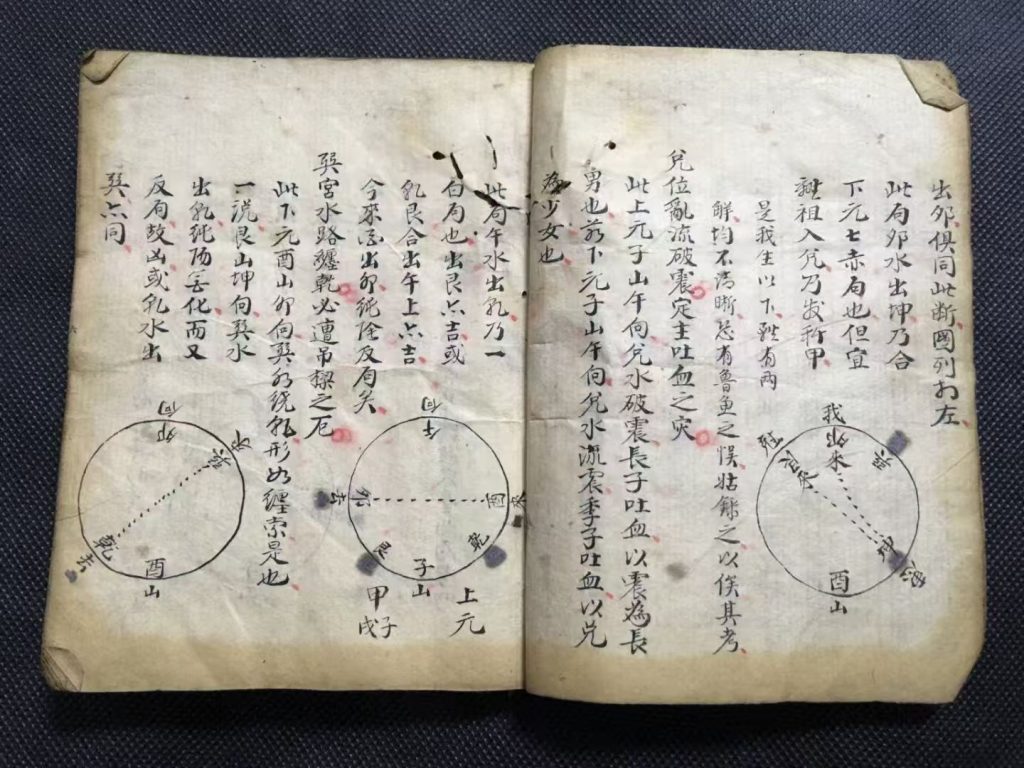 出卯俱同此断圖列于左
此局卯水出坤乃合
下元七赤局也但宜
祖入兌乃发新甲
是我生以下 有两
解均不清晰恐有魯魚之悮姑 之以俟其考
兌位亂流破震定主吐血之灾
此上元子山午向兌水破震長子吐血以震為長
男也若下元子山午向兌水流震季子吐血以兌
為少女也
我
卯
来
坤
酉
山
此局午水出乹乃一
白局也出艮亦吉或
乹艮合出午上亦吉
今来酉出卯純陰反局矣
巽宮水路纏乾必遭吊樑之厄
此下元酉山卯向巽水繞乹形如纏索是也
一説艮山坤向巽水
出乹純陽無化而又
反局故凶或乹水出
巽亦同
向
午
酉
来
卯
去
乾
艮
子
山
上元
甲子
戌
向
卯
来
乾
去
酉
山